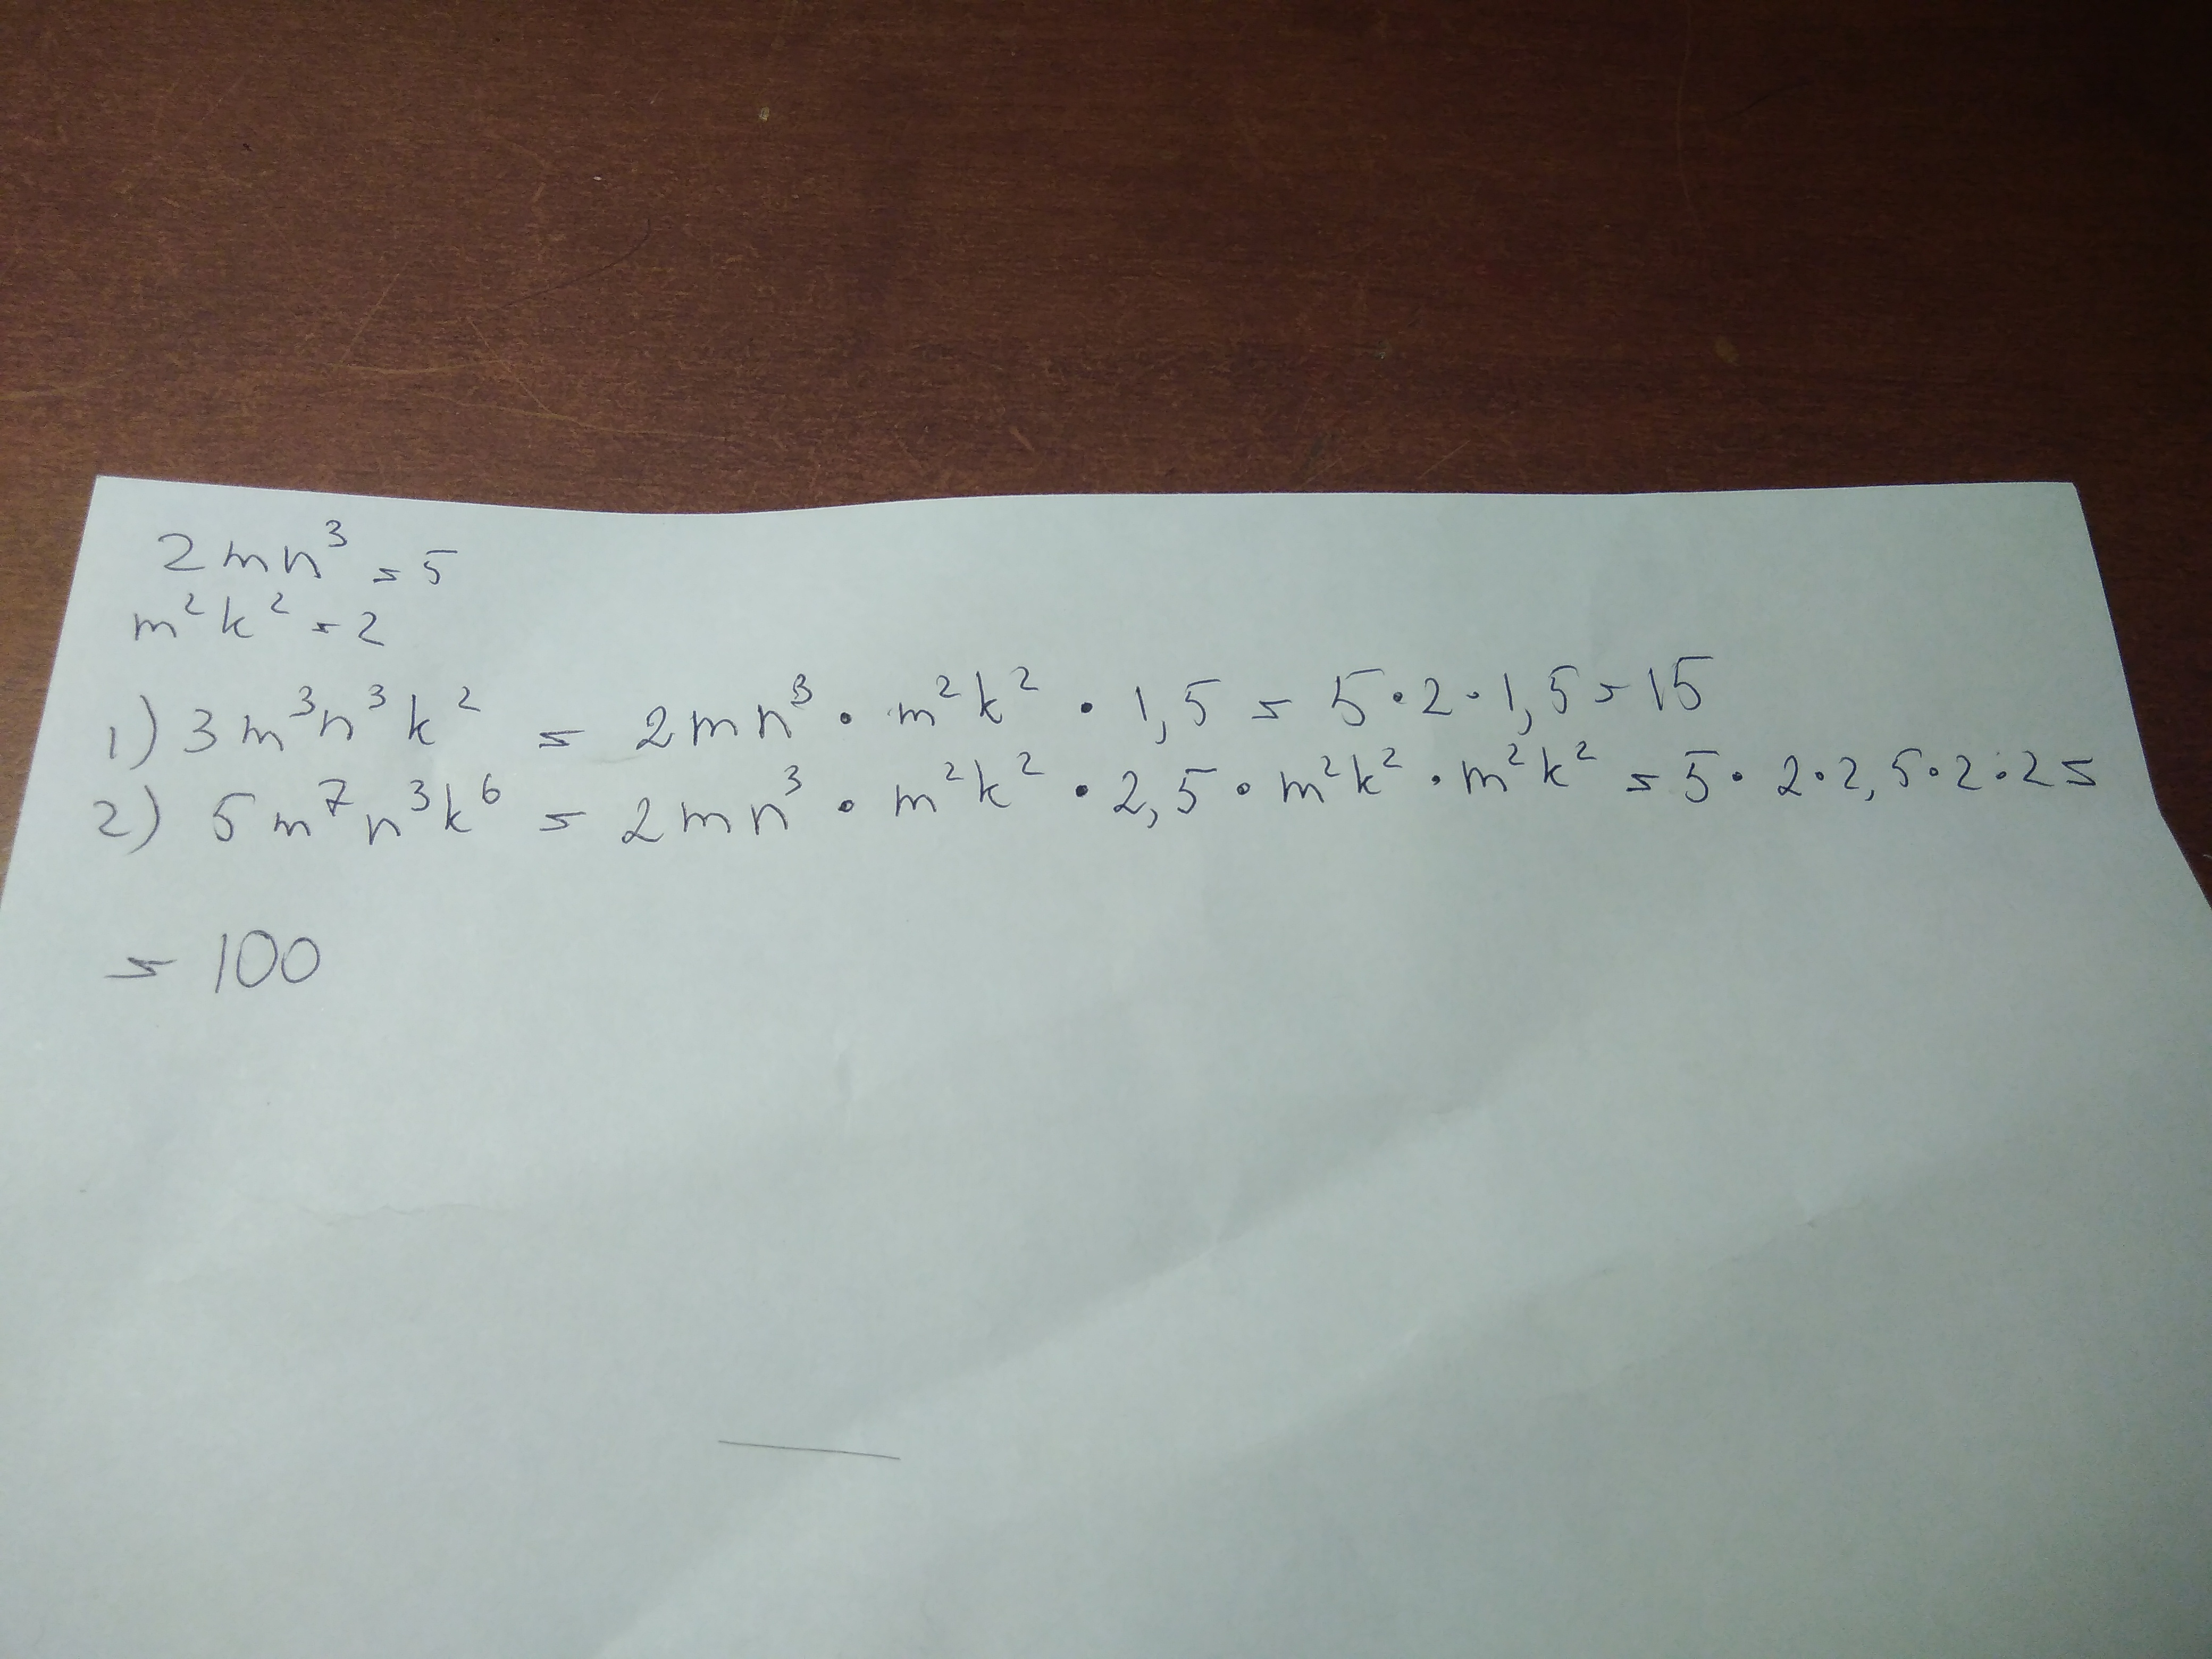 2mn³ = 5
m²k² = 2
1) 3m³n³k² = 2mn³ · m²k² · 1,5 = 5·2·1,5 = 15
2) 5m⁷n³k⁶ = 2mn³ · m²k² · 2,5 · m²k² · m²k² = 5· 2·2,5·2·2 =
= 100